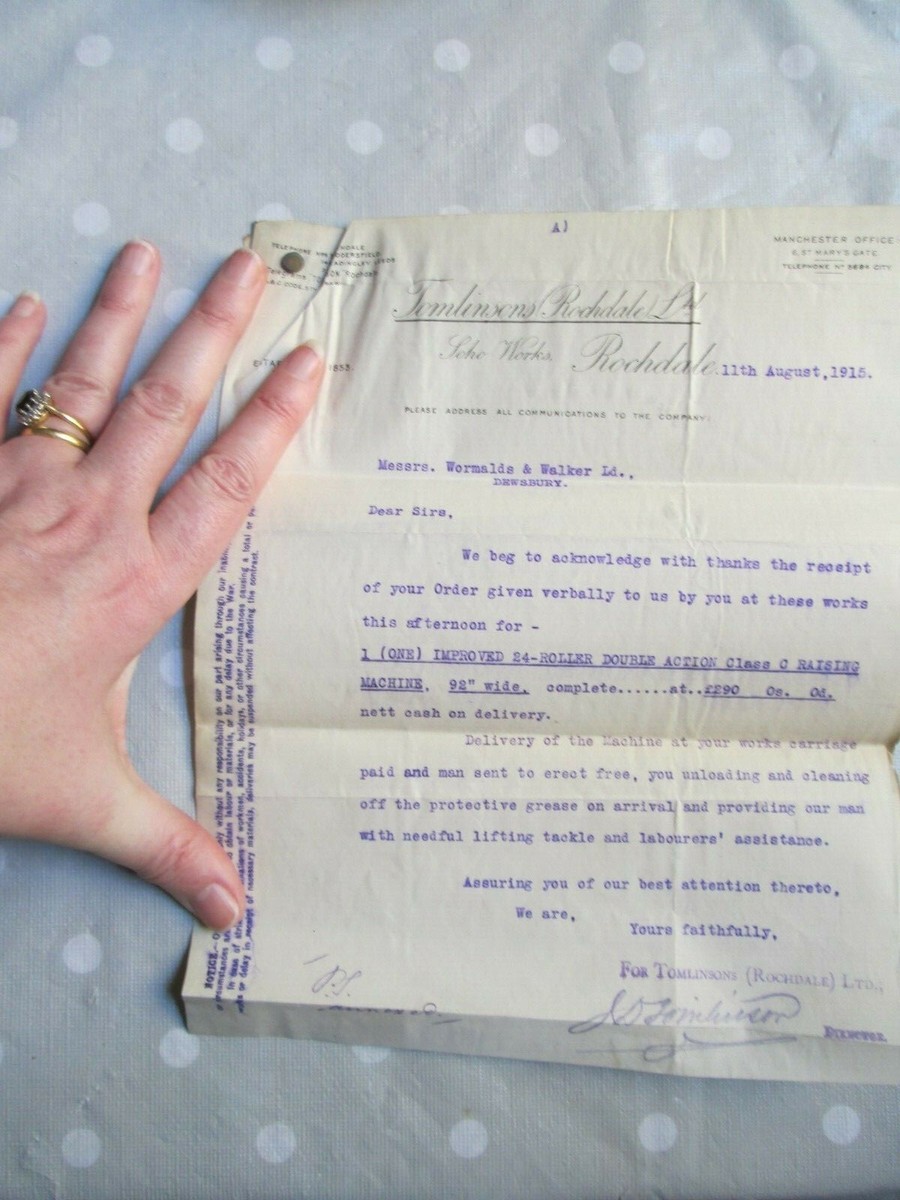 A)
TELEPHONE
HUDDERSFIELD
HEADINGLEY LEEDS
Telegrams Rochdale
A.B.C. CODE, 5TH
MANCHESTER OFFICE
6, ST MARY'S GATE.
TELEPHONE Nº 5684 CITY
Tomlinsons (Rochdale) Ltd
Soho Works,
Rochdale. 11th August, 1915.
1853.
PLEASE ADDRESS ALL COMMUNICATIONS TO THE COMPANY:
Messrs. Wormalds & Walker Ld.,
DEWSBURY.
Dear Sirs,
We beg to acknowledge with thanks the receipt
of your Order given verbally to us by you at these works
this afternoon for -
1 (ONE) IMPROVED 24-ROLLER DOUBLE ACTION Class C RAISING
MACHINE, 92" wide, complete......at..£290 0s. 0d.
nett cash on delivery.
Delivery of the Machine at your works carriage
paid and man sent to erect free, you unloading and cleaning
off the protective grease on arrival and providing our man
with needful lifting tackle and labourers' assistance.
Assuring you of our best attention thereto,
We are,
Yours faithfully,
FOR TOMLINSONS (ROCHDALE) LTD.,
J D Tomlinson
DIRECTOR.
P.S.
NOTICE.
without any responsibility on our part arising through our
circumstances obtain labour or materials, or for any delay due to the War.
In case of of workmen, accidents, holidays, or other circumstances causing a total or
or delay in receipt of necessary materials, deliveries may be suspended without affecting the contract.